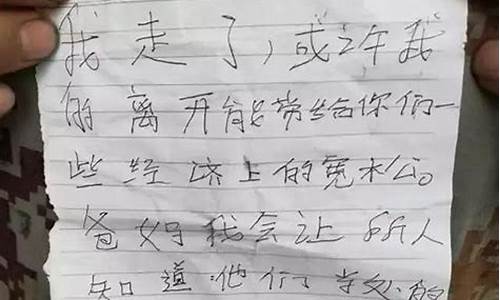 我走了，或许我
的离开能带给你们一
些经济上的宽松。
爸妈我会让所有人
知道他们当处的